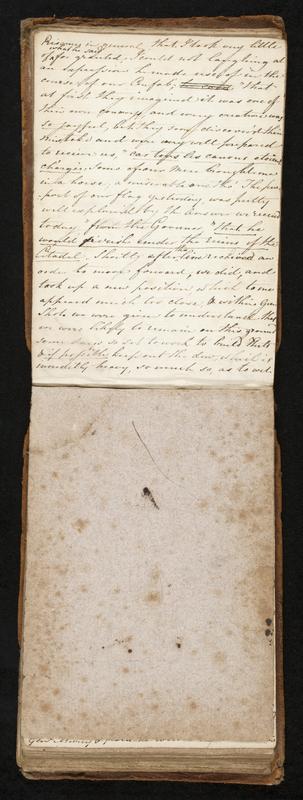 Prisoners in general, that I took very little
what he said
of for granted, I could not laughing at
an expression he made use of in the
course of our Confab;
"That
at first they imagined it was one of
their own convoys and every creature was
so joyful, but they soon discovered their
mistake and were very well prepared
to receive us, "car tous les canons etoient
chargés; Some of our Men brought one
in a horse, a miserable one tho'. The pur-
port of our flag yesterday was partly
well explained by the answer we received
today, "from the Governor, "that he
would perish under the ruins of the
Citadel. Shortly after we received an
order to move forward, we did, and
took up a new position, which to me
appeared much too close, & within Gun
Shot. we were given to understand that
we were likely to remain on this ground
some days so set to work to build Huts
& if possible keep out the dew, which is
uncedly heavy, so much so, as to wet